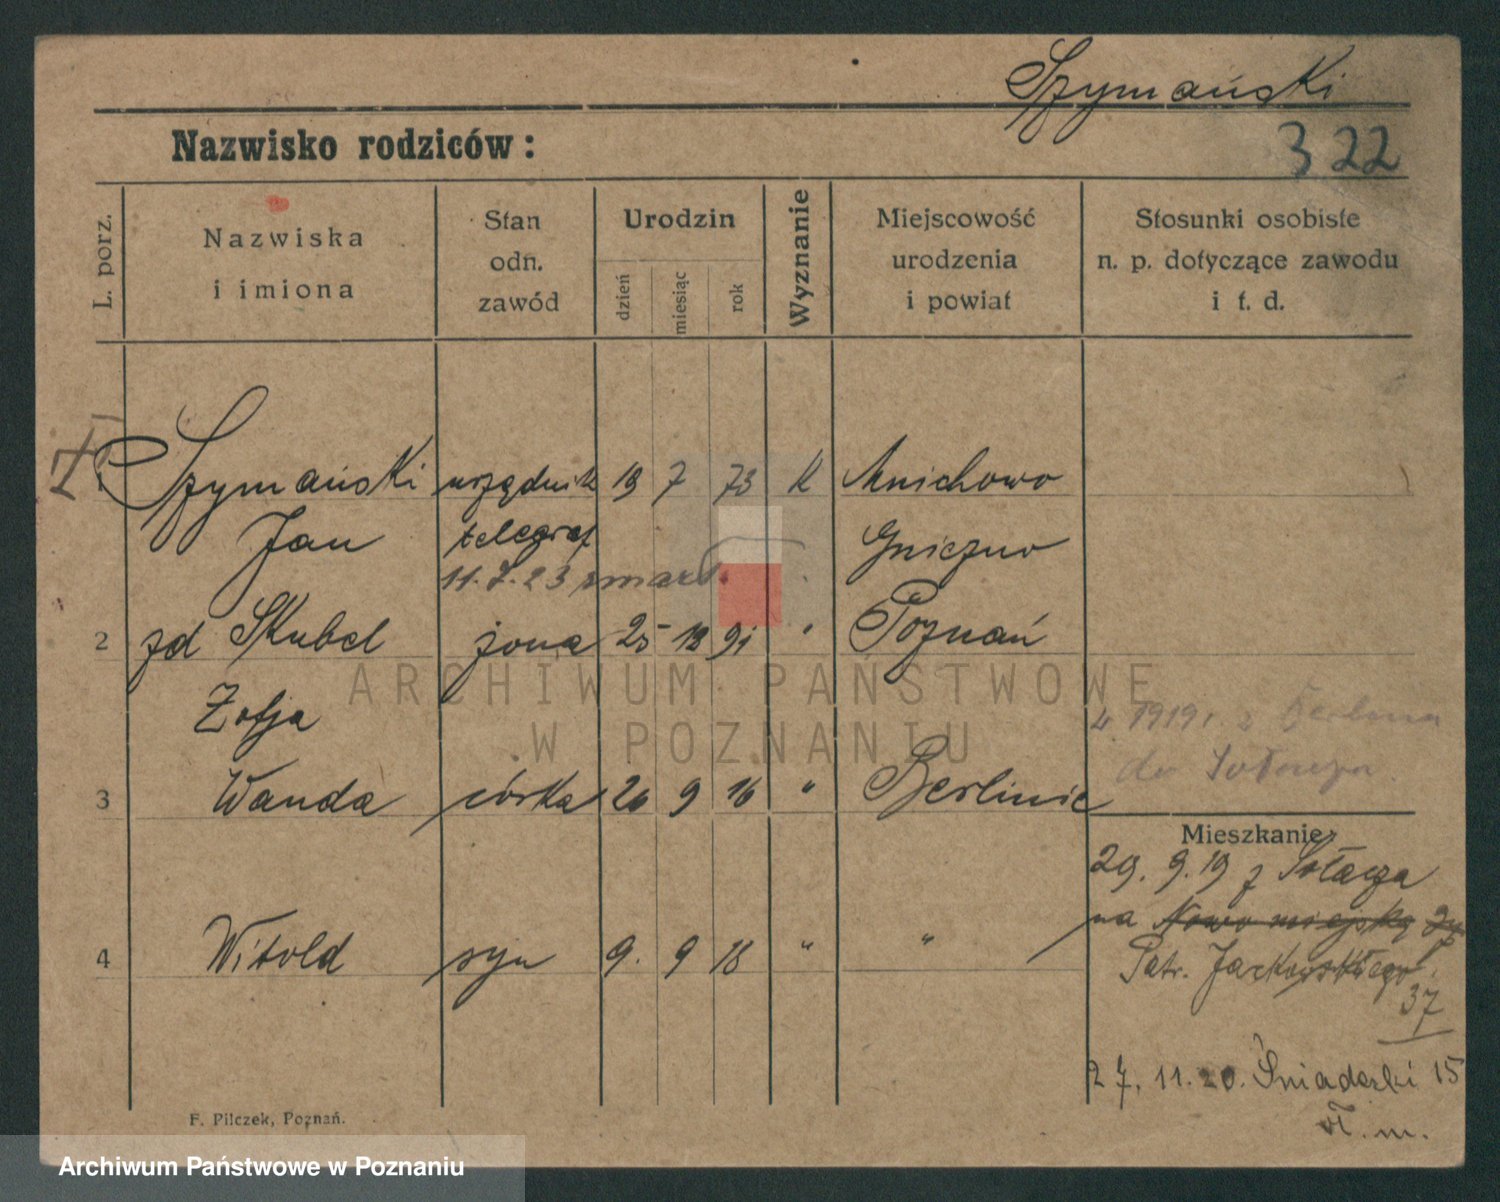 Szymański
Nazwisko rodziców:
322
L. porz.
Nazwiska
i imiona
Stan
odn.
zawód
Urodzin
dzień
miesiąc
rok
Wyznanie
Miejscowość
urodzenia
i powiat
Stosunki osobiste
n. p. dotyczące zawodu
i t. d.
Szymański urzędnik 19 7 73 k Mnichowo
Jan telegraf Gniezno
11.7.23 zmarł.
2 zd Skubel żona 25 12 91 " Poznań
Zofja
w 1919 r z Berlina
do Sołacza.
3 Wanda córka 9 16 " Berlinie
Mieszkanie
29.9.19 z Sołacza
na Nowo miejską
Patr. Jackowskiego
37
4 Witold syn 9. 9 18 " "
27.11.20. Śniadecki 15
m.
F. Pilczek, Poznań.
ARCHIWUM PAŃSTWOWE
W POZNANIU
Archiwum Państwowe w Poznaniu